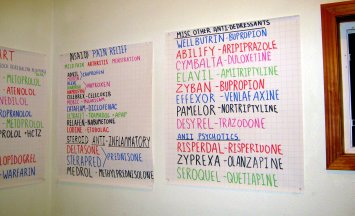 ART
METOPROL
-ATENOLOL
VEDILOL
PROPRANOL
METOPROLOL
PROLOL -HCTZ
LOPIDOGREL
-WARFARIN
NSAID PAIN RELIEF
MILD PAIN ARTHRITIS MENSTRUATION
ADVIL
IBUPROFEN
MOTRIN
NAPROXEN
CELEBREX-CELECOXIB
CATAFLAM-DICLOFENAC
ULTRACET-TRAMADOL + APAP
RELAFEN-NABUMETONE
LODINE - ETODOLAC
STEROID ANTI-INFLAMMATORY
DELTASONE
STERAPRED
PREDNISONE
MEDROL -METHYLPREDNISOLONE
MISC OTHER ANTI-DEPRESSANTS
WELLBUTRIN -BUPROPION
ABILIFY -ARIPIPRAZOLE
CYMBALTA -DULOXETINE
ELAVIL -AMITRIPTYLINE
ZYBAN -BUPROPION
EFFEXOR -VENLAFAXINE
PAMELOR -NORTRIPTYLINE
DESYREL -TRAZODONE
ANTI PSYCHOTICS
RISPERDAL -RISPERIDONE
ZYPREXA -OLANZAPINE
SEROQUEL -QUETIAPINE